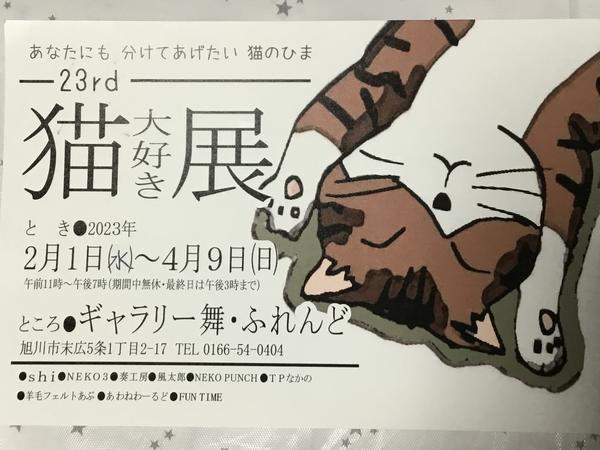 あなたにも 分けてあげたい 猫のひま
23rd
猫大好き展
とき●2023年
2月1日(水)～4月9日(日)
午前11時～午後7時(期間中無休・最終日は午後3時まで)
ところ●ギャラリー舞・ふれんど
旭川市末広5条1丁目2-17 TEL 0166-54-0404
●shi●NEKO3●奏工房●風太郎●NEKO PUNCH●TPなかの
●羊毛フェルトあぶ●あわねわーるど●FUN TIME